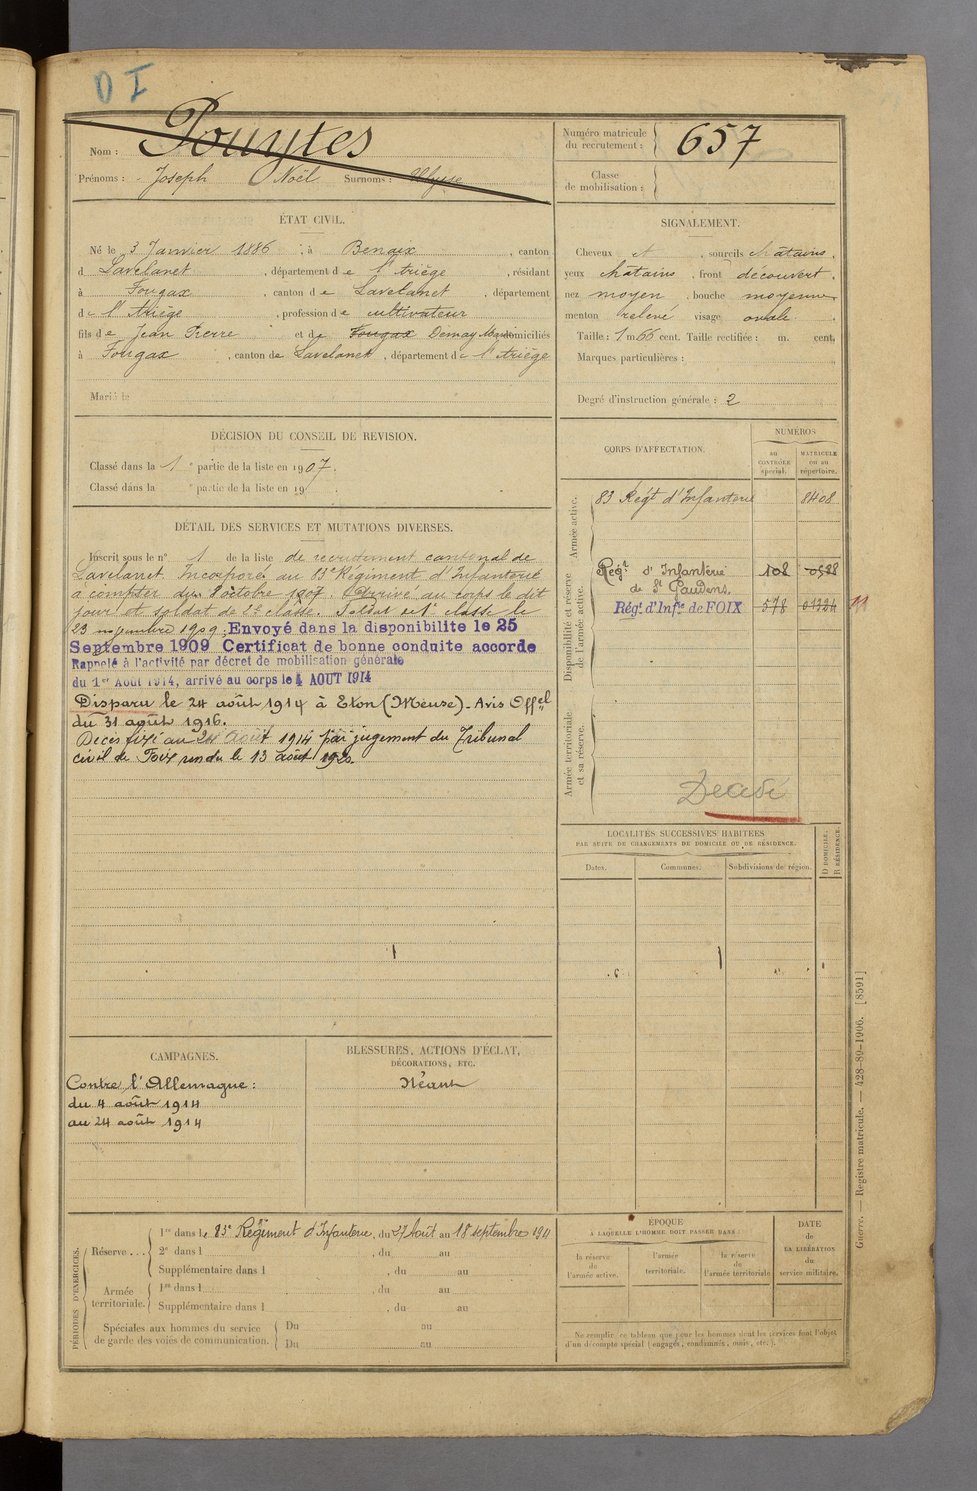 D I
Nom : Pouytes
Prénoms : Joseph Noël Surnoms : Ulysse
Numéro matricule du recrutement : 657
Classe de mobilisation :
ÉTAT CIVIL.
Né le 3 Janvier 1886, à Benaix, canton
d Lavelanet, département de l'Ariège, résidant
à Fougax, canton de Lavelanet, département
de l'Ariège, profession de cultivateur
fils de Jean Pierre et de Fougax domiciliés
à Fougax, canton de Lavelanet, département de l'Ariège
Marié le
SIGNALEMENT.
Cheveux et, sourcils châtains,
yeux châtains, front découvert,
nez moyen, bouche moyenne
menton relevé visage ovale.
Taille : 1 m 66 cent. Taille rectifiée : m. cent.
Marques particulières :
Degré d'instruction générale : 2
DÉCISION DU CONSEIL DE REVISION.
Classé dans la 1e partie de la liste en 1907.
Classé dans la e partie de la liste en 19
DÉTAIL DES SERVICES ET MUTATIONS DIVERSES.
Inscrit sous le n° 1 de la liste de recrutement cantonal de
Lavelanet. Incorporé au 83e Régiment d'Infanterie
à compter du 8 octobre 1907. Arrivé au corps le dit
jour et soldat de 2e classe. Soldat de 1e classe le
23 novembre 1909. Envoyé dans la disponibilite le 25
Septembre 1909 Certificat de bonne conduite accorde
Rappelé à l'activité par décret de mobilisation générale
du 1er Août 1914, arrivé au corps le 4 AOUT 1914
Disparu le 24 août 1914 à Eton (Meuse). Avis Offel
du 31 août 1916.
Décès fixé au 24 Août 1914 par jugement du Tribunal
civil de Foix rendu le 13 août 1920.
CORPS D'AFFECTATION.
NUMÉROS
AU CONTRÔLE spécial.
MATRICULE ou au répertoire.
Armée active.
83 Régt d'Infanterie 8408
Disponibilité et réserve de l'armée active.
Régt d'Infanterie 108
de St Gaudens.
Régt d'Infie de FOIX 578
11
Armée territoriale et sa réserve.
LOCALITÉS SUCCESSIVES HABITÉES
PAR SUITE DE CHANGEMENTS DE DOMICILE OU DE RÉSIDENCE.
Dates. Communes. Subdivisions de région.
D DOMICILE.
R RÉSIDENCE.
CAMPAGNES.
Contre l'Allemagne :
du 4 août 1914
au 24 août 1914
BLESSURES, ACTIONS D'ÉCLAT,
DÉCORATIONS, ETC.
Néant
PÉRIODES D'EXERCICES.
Réserve . . .
1re dans le 83e Régiment d'Infanterie, du 27 Août au 18 septembre 1911
2e dans l, du au
Supplémentaire dans l, du au
Armée territoriale.
1re dans l, du au
Supplémentaire dans l, du au
Spéciales aux hommes du service de garde des voies de communication.
Du au
Du au
ÉPOQUE
À LAQUELLE L'HOMME DOIT PASSER DANS :
la réserve de l'armée active.
l'armée territoriale.
la réserve de l'armée territoriale
DATE
de
LA LIBÉRATION
du
service militaire.
Ne remplir ce tableau que pour les hommes dont les services font l'objet
d'un décompte spécial (engagés, condamnés, omis, etc.).
Guerre. — Registre matricule. — 428-89-1906. [8591]